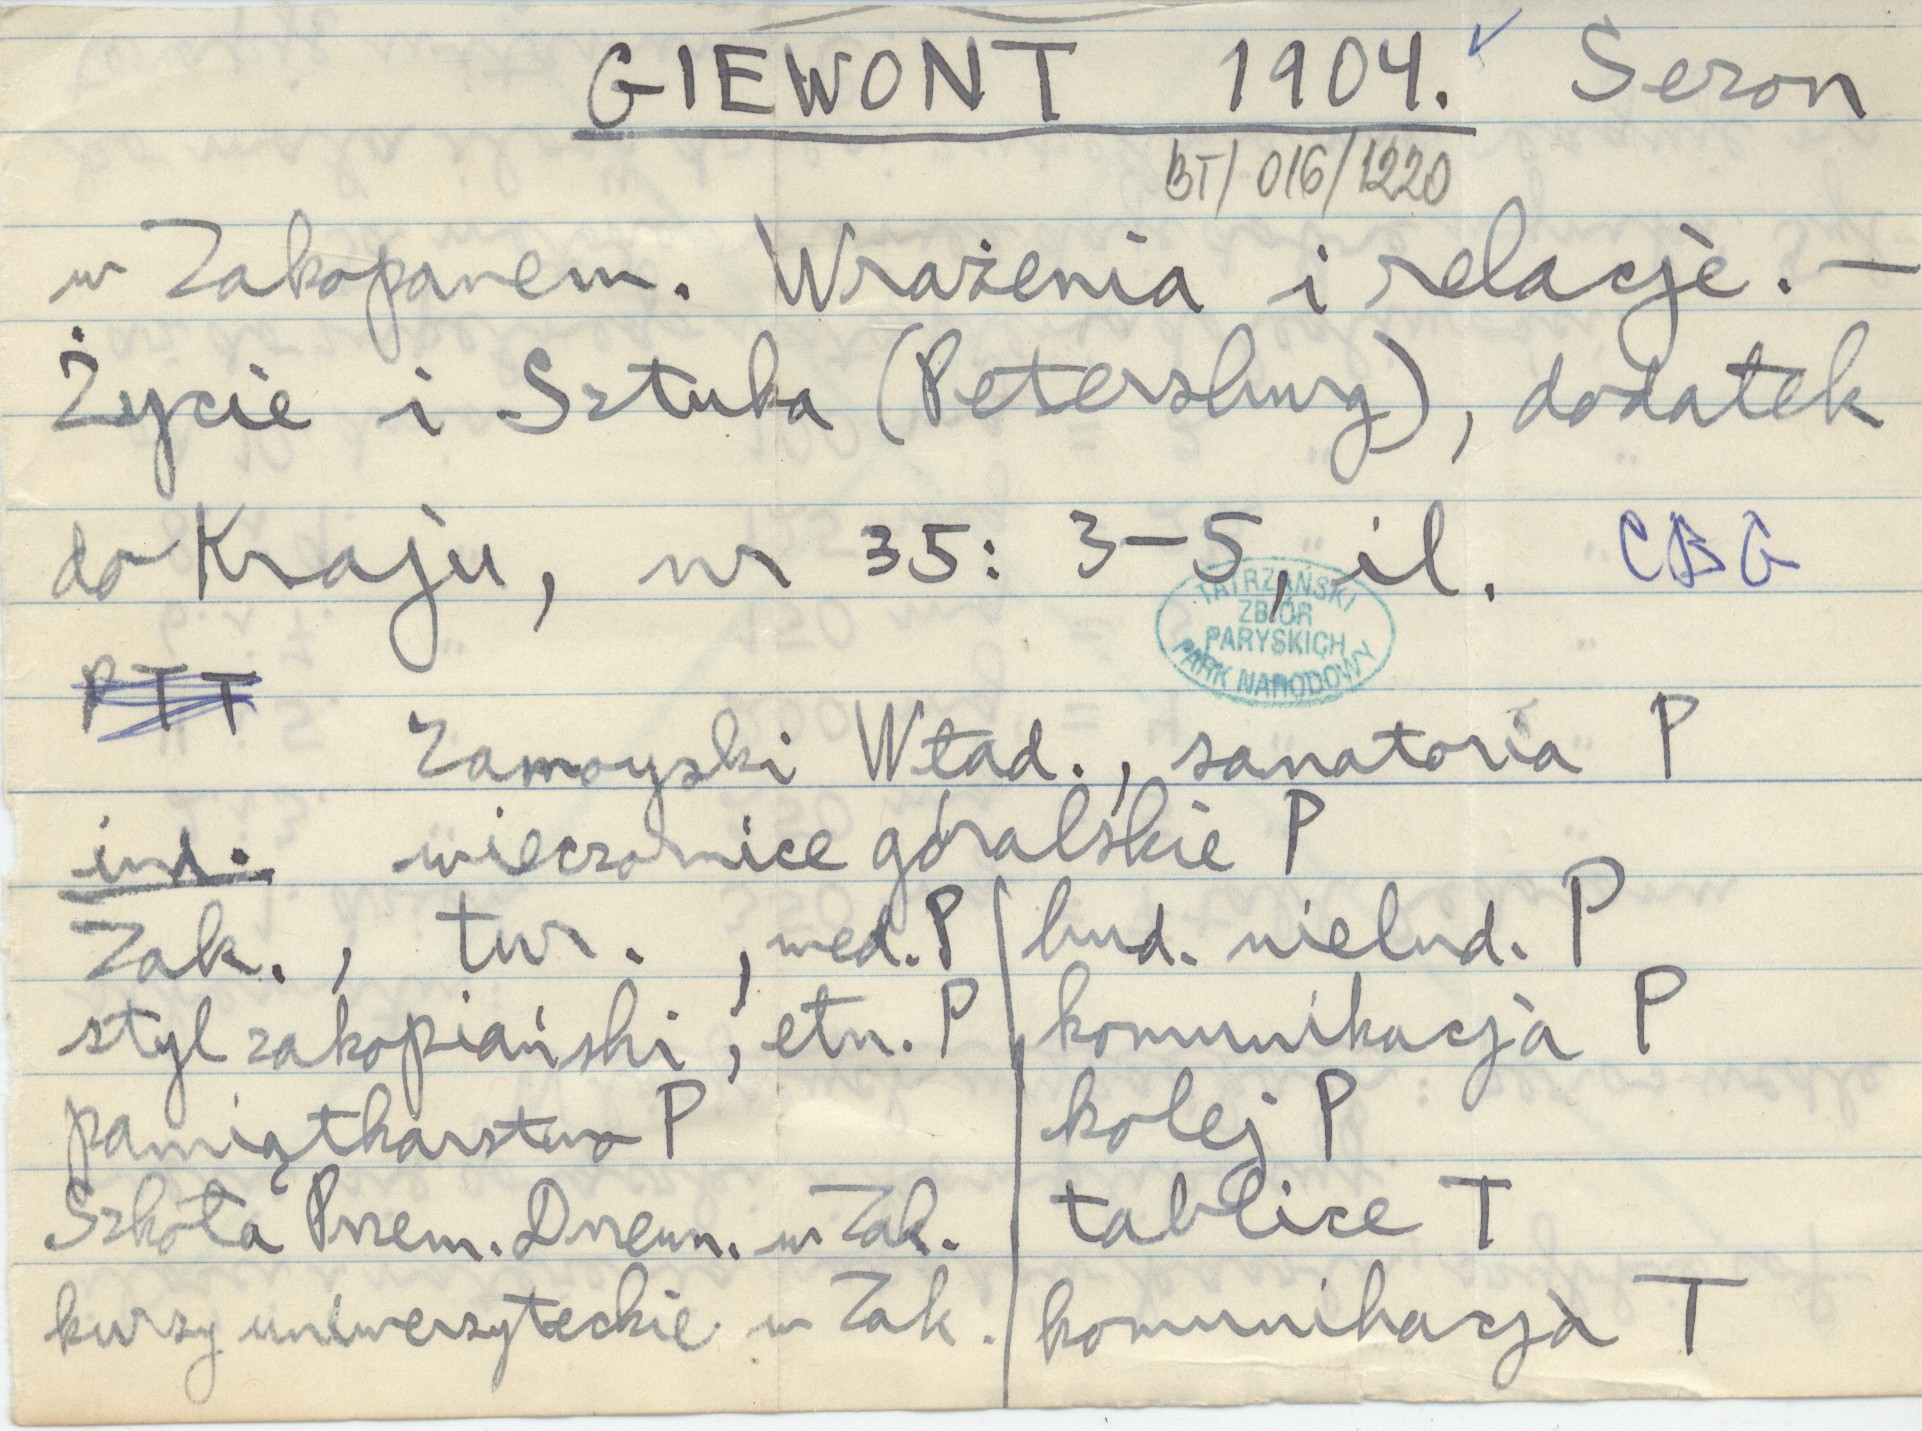 GIEWONT 1904. Sezon
BT/016/1220
w Zakopanem. Wrażenia i relacje. —
Życie i Sztuka (Petersburg), dodatek
do Kraju, nr 35: 3-5, il. CBG
TATRZAŃSKI
ZBIÓR
PARYSKICH
PARK NARODOWY
PTT
Zamoyski Wład., sanatoria P
ind. wieczornice góralskie P
Zak., tur., med. P bud. nielud. P
styl zakopiański, etn. P komunikacja P
pamiątkarstwo P kolej P
Szkoła Przem. Drzewn. w Zak. tablice T
kursy uniwersyteckie w Zak. komunikacja T